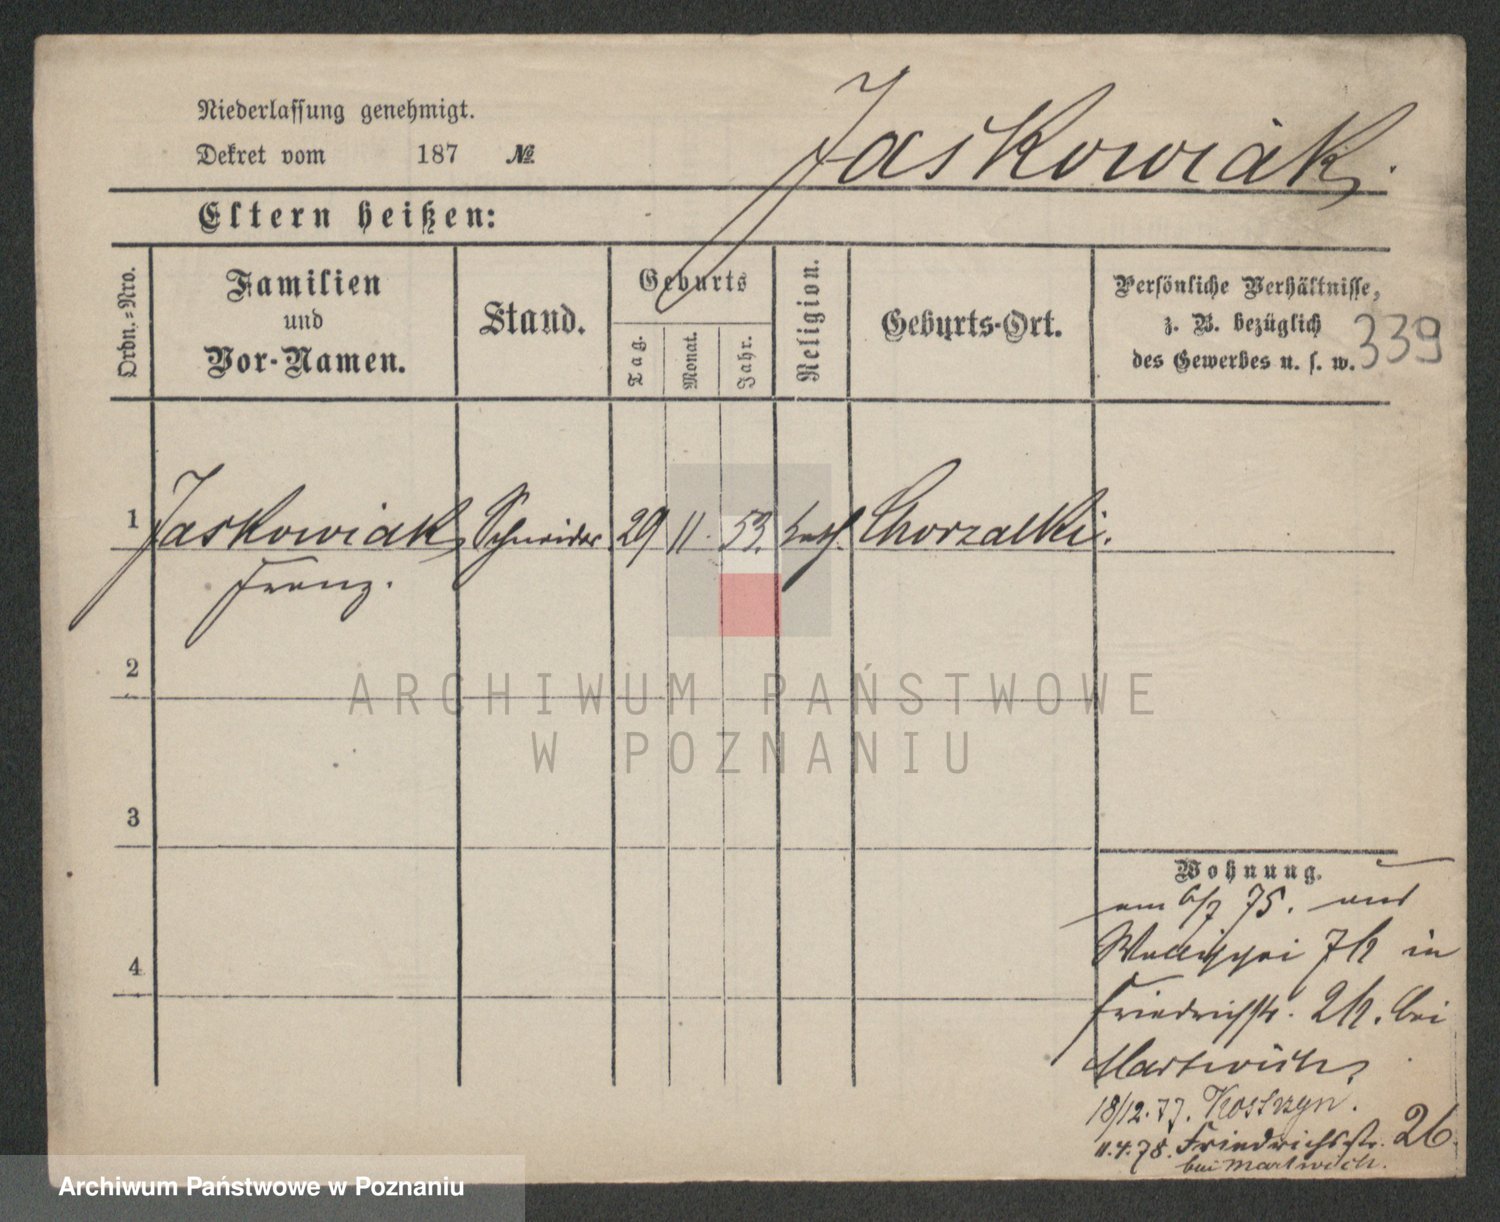 Niederlassung genehmigt.
Dekret vom 187 №
Jaskowiak.
Eltern heißen:
Ordn.=Nro.
Familien
und
Vor-Namen.
Stand.
Geburts
Tag.
Monat.
Jahr.
Religion.
Geburts-Ort.
Persönliche Verhältnisse,
z. B. bezüglich
des Gewerbes u. s. w.
339
1 Jaskowiak Schneider 29 11. 53. kath. Chorzalki.
Franz.
2
3
4
ARCHIWUM PAŃSTWOWE
W POZNANIU
Wohnung.
am 6/7 75. aus
in
Friedrichstr. bei
Martwich,
18/12.77. Kostrzyn.
11.4.78. Friedrichsstr. 26.
bei Martwich.
Archiwum Państwowe w Poznaniu